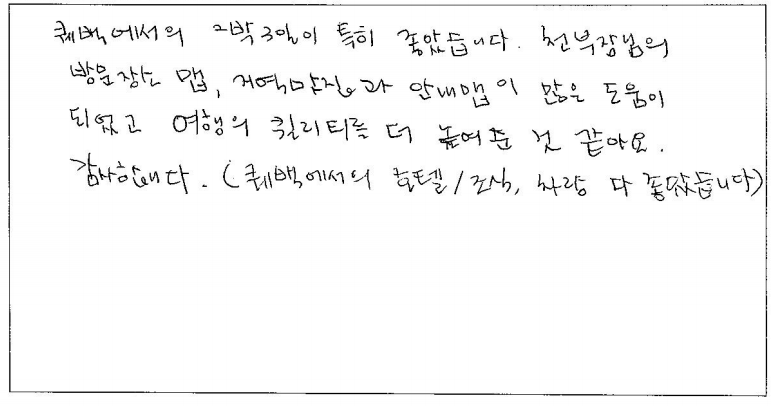 퀘백에서의 2박3일이 특히 좋았습니다. 천부장님의
방문장소 맵, 지역맛집과 안내맵이 많은 도움이
되었고 여행의 퀄리티를 더 높여준 것 같아요.
감사합니다. (퀘백에서의 호텔/조식, 차량 다 좋았습니다)